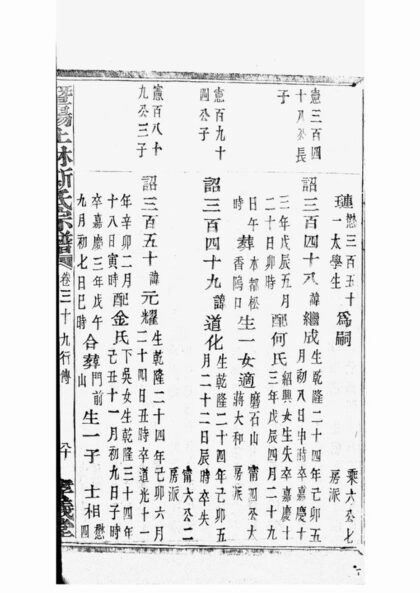 璉 懋三百五十一太學生 為嗣
秉六公七房派
憲三百四十八公長子
詔三百四十八 諱繼成 生乾隆二十四年己卯五月初八日申時卒嘉慶十三年戊辰五月二十日卯時 配何氏 紹興女生失卒嘉慶十三年戊辰四月二十九日午時 葬 水都松香塢口 生一女適 磨石山蔣大和
甯四公大房派
憲百九十四公子
詔三百四十九 諱道化 生乾隆二十四年己卯五月二十二日辰時卒失
甯六公二房派
憲百八十九公三子
詔三百五十 諱元耀 生乾隆二十四年己卯六月二十四日丑時卒道光十一年辛卯二月十八日寅時 配金氏 下吳女生乾隆三十四年己丑十一月初九日子時卒嘉慶三年戊午九月初七日巳時 合葬 門前山 生一子 士相 懋四
暨陽上林斯氏宗譜
卷三十九行傳
八十